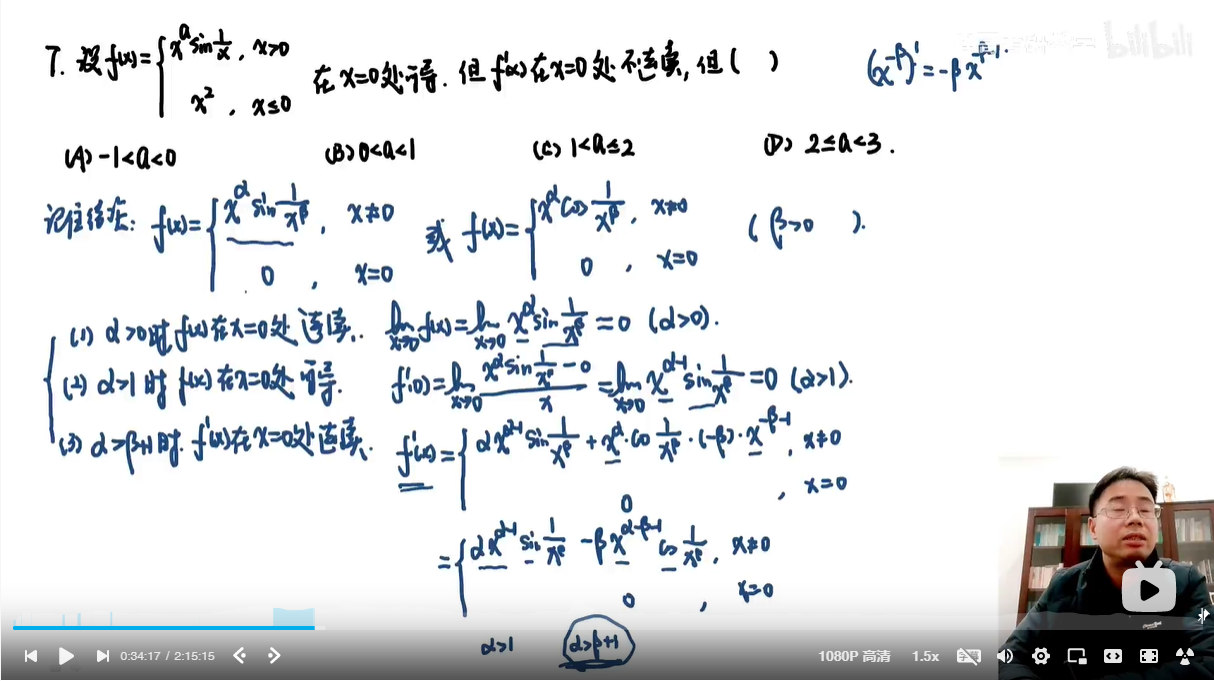 7. 设f(x)={x^a sin 1/x, x>0
x², x≤0
在x=0处可导. 但f'(x)在x=0处不连续, 但( )
(x^-β)'=-βx^-β-1.
bilibili
(A) -1<a<0 (B) 0<a<1 (C) 1<a≤2 (D) 2≤a<3.
记住结论: f(x)={x^α sin 1/x^β, x≠0
0, x=0
或 f(x)={x^α cos 1/x^β, x≠0
0, x=0
(β>0 ).
(1) α>0时f(x)在x=0处连续. lim x→0 f(x)=lim x→0 x^α sin 1/x^β=0 (α>0).
(2) α>1时f(x)在x=0处可导. f'(0)=lim x→0 (x^α sin 1/x^β -0)/x=lim x→0 x^α-1 sin 1/x^β=0 (α>1).
(3) α>β+1时. f'(x)在x=0处连续. f'(x)={αx^α-1 sin 1/x^β + x^α·cos 1/x^β·(-β)·x^-β-1, x≠0
0, x=0
={αx^α-1 sin 1/x^β -βx^α-β-1 cos 1/x^β, x≠0
0, x=0
α>1 α>β+1
0:34:17 / 2:15:15 1080P 高清 1.5x 字幕